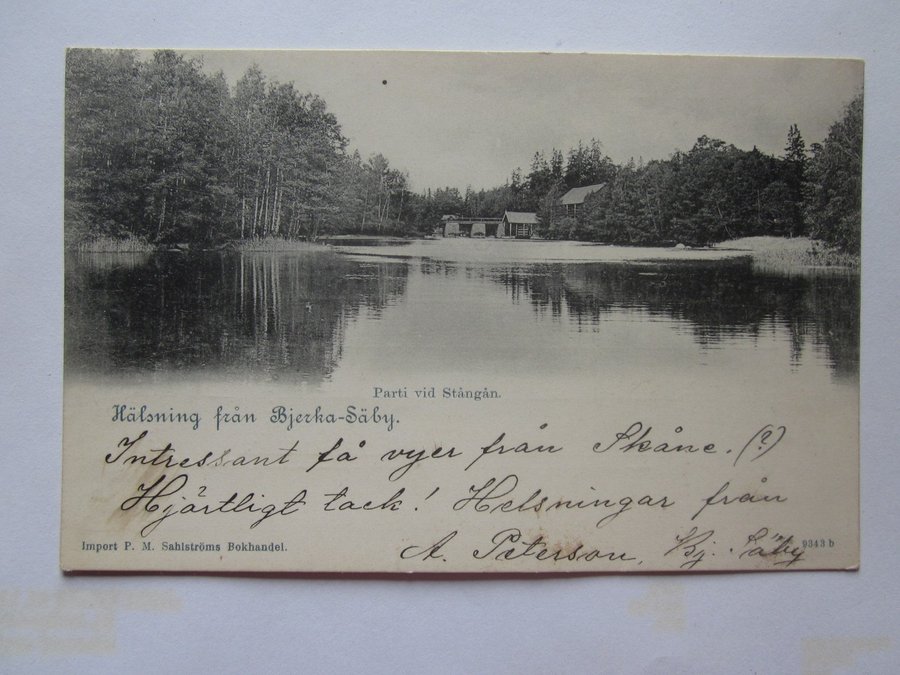 Parti vid Stångån.
Hälsning från Bjerka-Säby.
Intressant få vyer från Skåne. (?)
Hjärtligt tack! Helsningar från
A. Peterson, Bj. Säby
Import P. M. Sahlströms Bokhandel.
9343 b